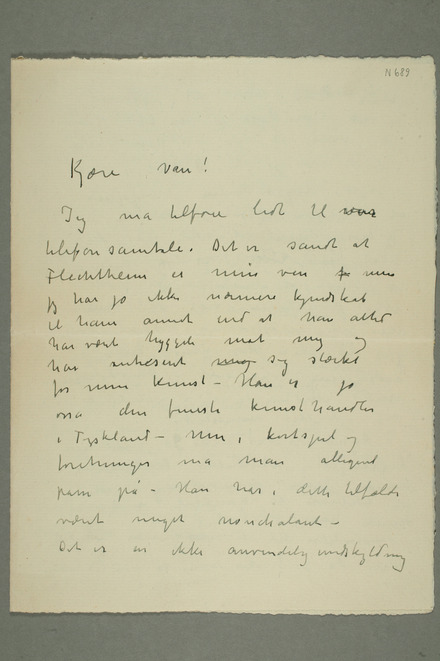 N 689
Kjære ven!
Jeg må tilføie lidt til vor
telefonsamtale. Det er sandt at
Flechtheim er min ven men
jeg har jo ikke nærmere kjendskab
til ham annet end at han altid
har vært hyggelig mot mig og
har interesert mig sig sterkt
for min kunst – Han er jo
osså den fineste kunsthandler
i Tyskland – Men i kortspil og
foretninger må man alligevel
passe på – Han har i dette tilfælde
været meget nonchalant –
Det er en ikke anvendelig undskyldning